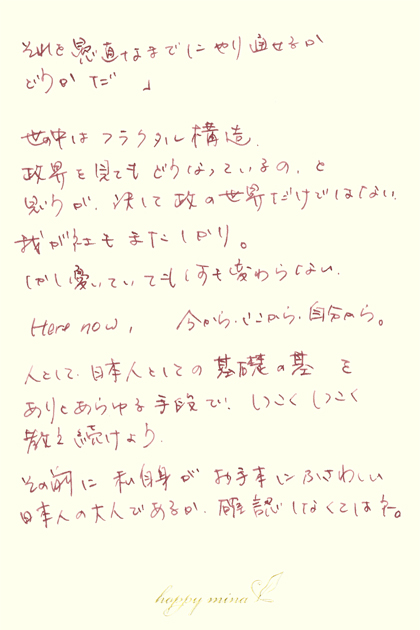 それを愚直なまでにやり通せるか
どうかだ」
世の中はフラクタル構造.
政界を見てもどうなっているの、と
思うが、決して政の世界だけではない.
我が社もまたしかり。
しかし憂いていても何も変わらない.
Here now, 今から・ここから・自分から。
人として、日本人としての基礎の基を
ありとあらゆる手段で、しつこくしつこく
教え続けよう.
その前に私自身がお手本にふさわしい
日本人の大人であるか、確認しなくてはネ。
happy mina